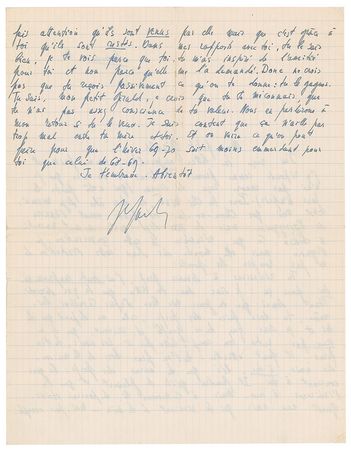 fais attention qu'ils sont venus par elle mais que c'est grâce à
toi qu'ils sont restés. Dans mes rapports avec toi, tu le sais
bien, je te vois parce que toi, tu m'as inspiré de l'amitié
pour toi et non parce qu'elle me l'a demandé. Donc ne crois
pas que tu reçois passivement ce qu'on te donne: tu le gagnes.
Tu sais, mon petit je crois que tu te méconnais, que
tu n'as pas assez conscience de ta valeur. Nous en parlerons à
mon retour si tu le veux. Je suis content que ça n'aille pas
trop mal entre ta mère et toi. Et on verra ce qu'on peut
faire pour que l'hiver 69-70 soit moins emmerdant pour
toi que celui de 68-69.
Je t'embrasse. A bientôt